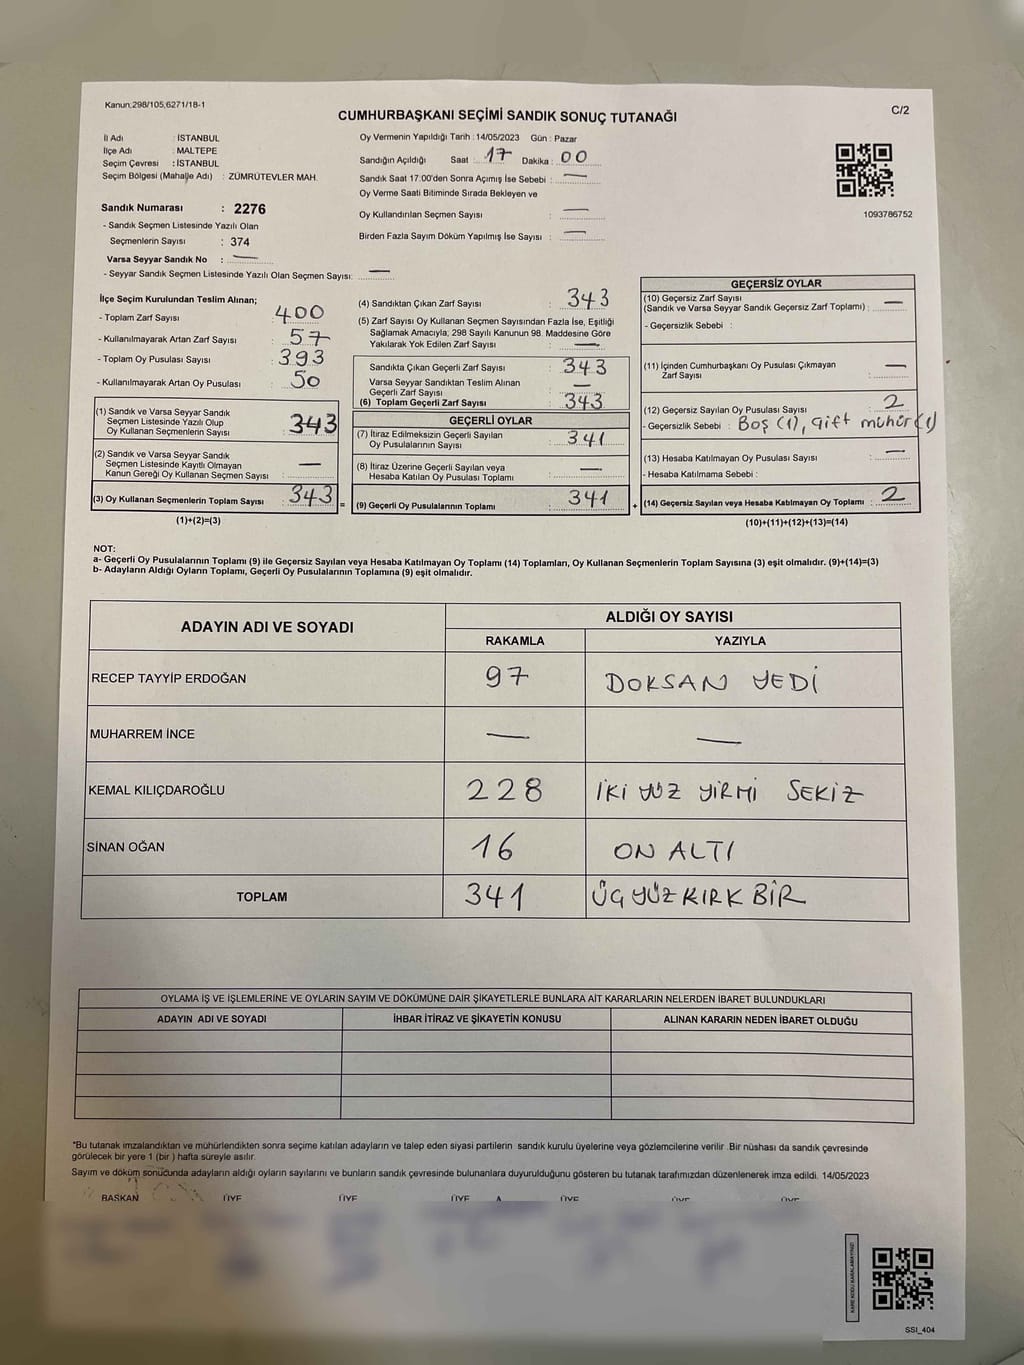 Kanun;298/105,6271/18-1
C/2
CUMHURBAŞKANI SEÇİMİ SANDIK SONUÇ TUTANAĞI
İl Adı : İSTANBUL
İlçe Adı : MALTEPE
Seçim Çevresi : İSTANBUL
Seçim Bölgesi (Mahalle Adı) : ZÜMRÜTEVLER MAH.
Sandık Numarası : 2276
- Sandık Seçmen Listesinde Yazılı Olan
Seçmenlerin Sayısı : 374
Varsa Seyyar Sandık No : —
- Seyyar Sandık Seçmen Listesinde Yazılı Olan Seçmen Sayısı: —
Oy Vermenin Yapıldığı Tarih : 14/05/2023 Gün : Pazar
Sandığın Açıldığı Saat : 17 Dakika : 00
Sandık Saat 17:00'den Sonra Açımış İse Sebebi : —
Oy Verme Saati Bitiminde Sırada Bekleyen ve
Oy Kullandırılan Seçmen Sayısı : —
Birden Fazla Sayım Döküm Yapılmış İse Sayısı : —
1093786752
İlçe Seçim Kurulundan Teslim Alınan;
- Toplam Zarf Sayısı : 400
- Kullanılmayarak Artan Zarf Sayısı : 57
- Toplam Oy Pusulası Sayısı : 393
- Kullanılmayarak Artan Oy Pusulası : 50
(1) Sandık ve Varsa Seyyar Sandık
Seçmen Listesinde Yazılı Olup
Oy Kullanan Seçmenlerin Sayısı : 343
(2) Sandık ve Varsa Seyyar Sandık
Seçmen Listesinde Kayıtlı Olmayan
Kanun Gereği Oy Kullanan Seçmen Sayısı : —
(3) Oy Kullanan Seçmenlerin Toplam Sayısı : 343 =
(1)+(2)=(3)
(4) Sandıktan Çıkan Zarf Sayısı : 343
(5) Zarf Sayısı Oy Kullanan Seçmen Sayısından Fazla İse, Eşitliği
Sağlamak Amacıyla; 298 Sayılı Kanunun 98. Maddesine Göre
Yakılarak Yok Edilen Zarf Sayısı : —
Sandıkta Çıkan Geçerli Zarf Sayısı : 343
Varsa Seyyar Sandıktan Teslim Alınan
Geçerli Zarf Sayısı : —
(6) Toplam Geçerli Zarf Sayısı : 343
GEÇERLİ OYLAR
(7) İtiraz Edilmeksizin Geçerli Sayılan
Oy Pusulalarının Sayısı : 341
(8) İtiraz Üzerine Geçerli Sayılan veya
Hesaba Katılan Oy Pusulası Toplamı : —
(9) Geçerli Oy Pusulalarının Toplamı : 341 +
GEÇERSİZ OYLAR
(10) Geçersiz Zarf Sayısı
(Sandık ve Varsa Seyyar Sandık Geçersiz Zarf Toplamı) : —
- Geçersizlik Sebebi :
(11) İçinden Cumhurbaşkanı Oy Pusulası Çıkmayan
Zarf Sayısı : —
(12) Geçersiz Sayılan Oy Pusulası Sayısı : 2
- Geçersizlik Sebebi : Boş (1), çift mühür (1)
(13) Hesaba Katılmayan Oy Pusulası Sayısı : —
- Hesaba Katılmama Sebebi :
(14) Geçersiz Sayılan veya Hesaba Katılmayan Oy Toplamı : 2
(10)+(11)+(12)+(13)=(14)
NOT:
a- Geçerli Oy Pusulalarının Toplamı (9) ile Geçersiz Sayılan veya Hesaba Katılmayan Oy Toplamı (14) Toplamları, Oy Kullanan Seçmenlerin Toplam Sayısına (3) eşit olmalıdır. (9)+(14)=(3)
b- Adayların Aldığı Oyların Toplamı, Geçerli Oy Pusulalarının Toplamına (9) eşit olmalıdır.
ADAYIN ADI VE SOYADI
ALDIĞI OY SAYISI
RAKAMLA YAZIYLA
RECEP TAYYİP ERDOĞAN 97 DOKSAN YEDİ
MUHARREM İNCE — —
KEMAL KILIÇDAROĞLU 228 İKİ YÜZ YİRMİ SEKİZ
SİNAN OĞAN 16 ON ALTI
TOPLAM 341 ÜÇ YÜZ KIRK BİR
OYLAMA İŞ VE İŞLEMLERİNE VE OYLARIN SAYIM VE DÖKÜMÜNE DAİR ŞİKAYETLERLE BUNLARA AİT KARARLARIN NELERDEN İBARET BULUNDUKLARI
ADAYIN ADI VE SOYADI İHBAR İTİRAZ VE ŞİKAYETİN KONUSU ALINAN KARARIN NEDEN İBARET OLDUĞU
*Bu tutanak imzalandıktan ve mühürlendikten sonra seçime katılan adayların ve talep eden siyasi partilerin sandık kurulu üyelerine veya gözlemcilerine verilir. Bir nüshası da sandık çevresinde
görülecek bir yere 1 (bir ) hafta süreyle asılır.
Sayım ve döküm sonucunda adayların aldığı oyların sayılarını ve bunların sandık çevresinde bulunanlara duyurulduğunu gösteren bu tutanak tarafımızdan düzenlenerek imza edildi. 14/05/2023
BAŞKAN ÜYE ÜYE ÜYE ÜYE ÜYE ÜYE
KARE KODU KARALAMAYINIZ!
SSI_404